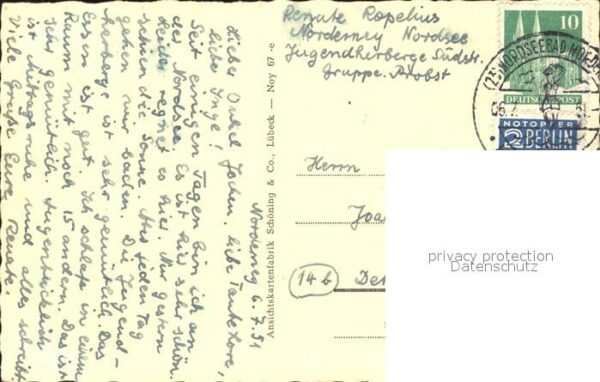 Norderney 6.7.51
Lieber Onkel Jochen, liebe Tante Lore,
liebe Inge!
Seit einigen Tagen bin ich an
der Nordsee. Es ist hier sehr schön.
Leider regnet es hier. Nur gestern
schien die Sonne. Aber jeden Tag
gehen wir baden. Die Jugend-
herberge ist sehr gemütlich. Das
Essen ist gut. Ich schlafe in einem
Raum mit noch 15 andern. Das ist
sehr gemütlich. Augenblicklich
ist Mittagsruhe und alles schreibt.
Viele Grüße Eure Renate.
Ansichtskartenfabrik Schöning & Co., Lübeck — Noy 67 -e
Renate Ropelius
Norderney Nordsee
Jugendherberge Südstr.
Gruppe
10
DEUTSCHE POST
NOTOPFER
2 BERLIN
(23) NORDSEEBAD
Herrn
Joa
14b
De
privacy protection
Datenschutz